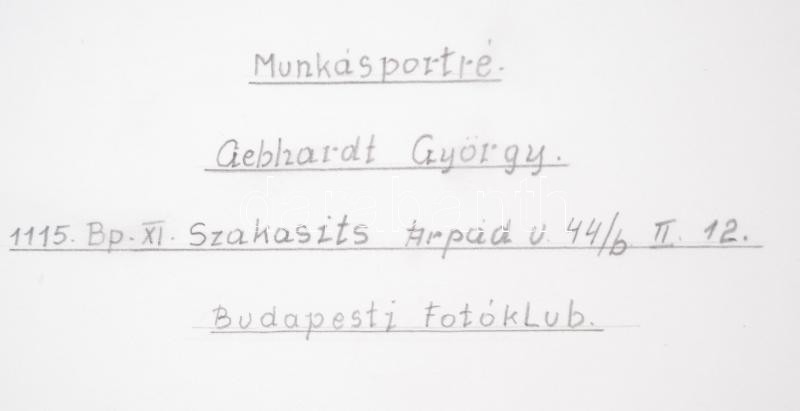 Munkásportré.
Gebhardt György.
1115. Bp. XI. Szakasits Árpád u. 44/b II. 12.
Budapesti Fotóklub.
darabanth